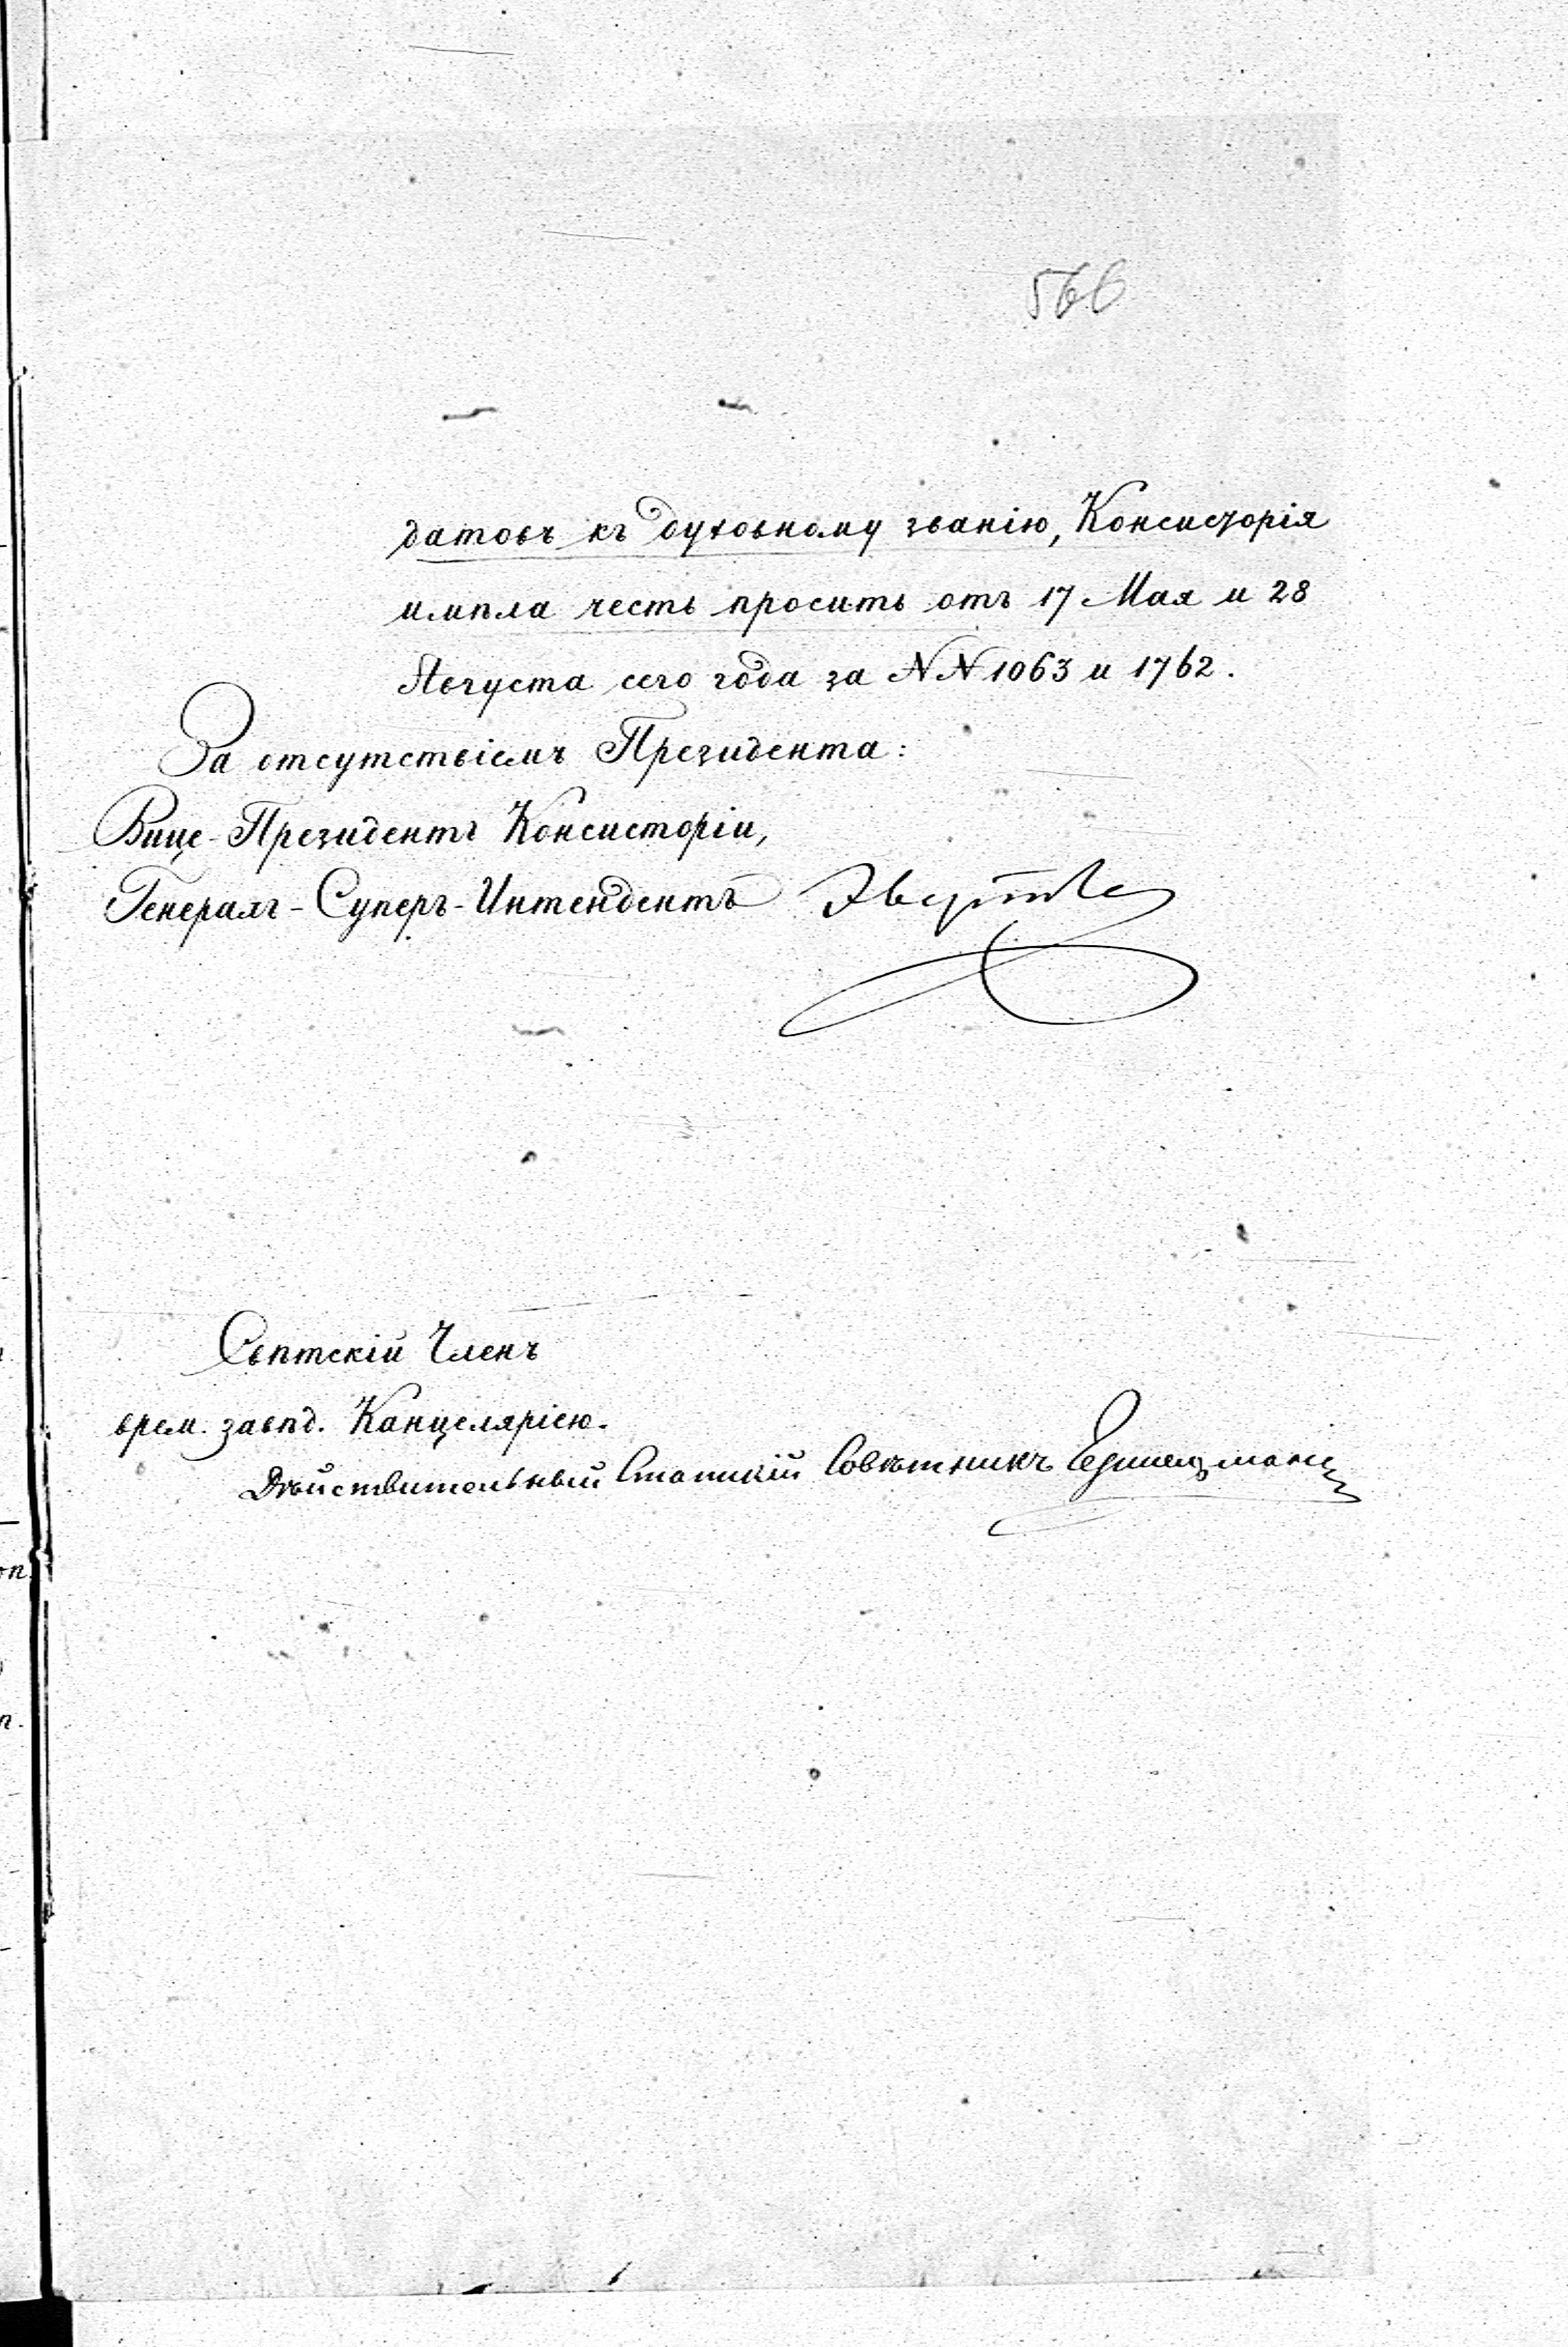 566
датовъ къ духовному званію, Консисторія
имѣла честь просить отъ 17 Мая и 28
Августа сего года за NN 1063 и 1762.
За отсутствіемъ Президента:
Вице-Президентъ Консисторіи,
Генералъ-Суперъ-Интендентъ Эвертъ
Свѣтскій Членъ
врем. завѣд. Канцеляріею.
Дѣйствительный Статскій Совѣтникъ